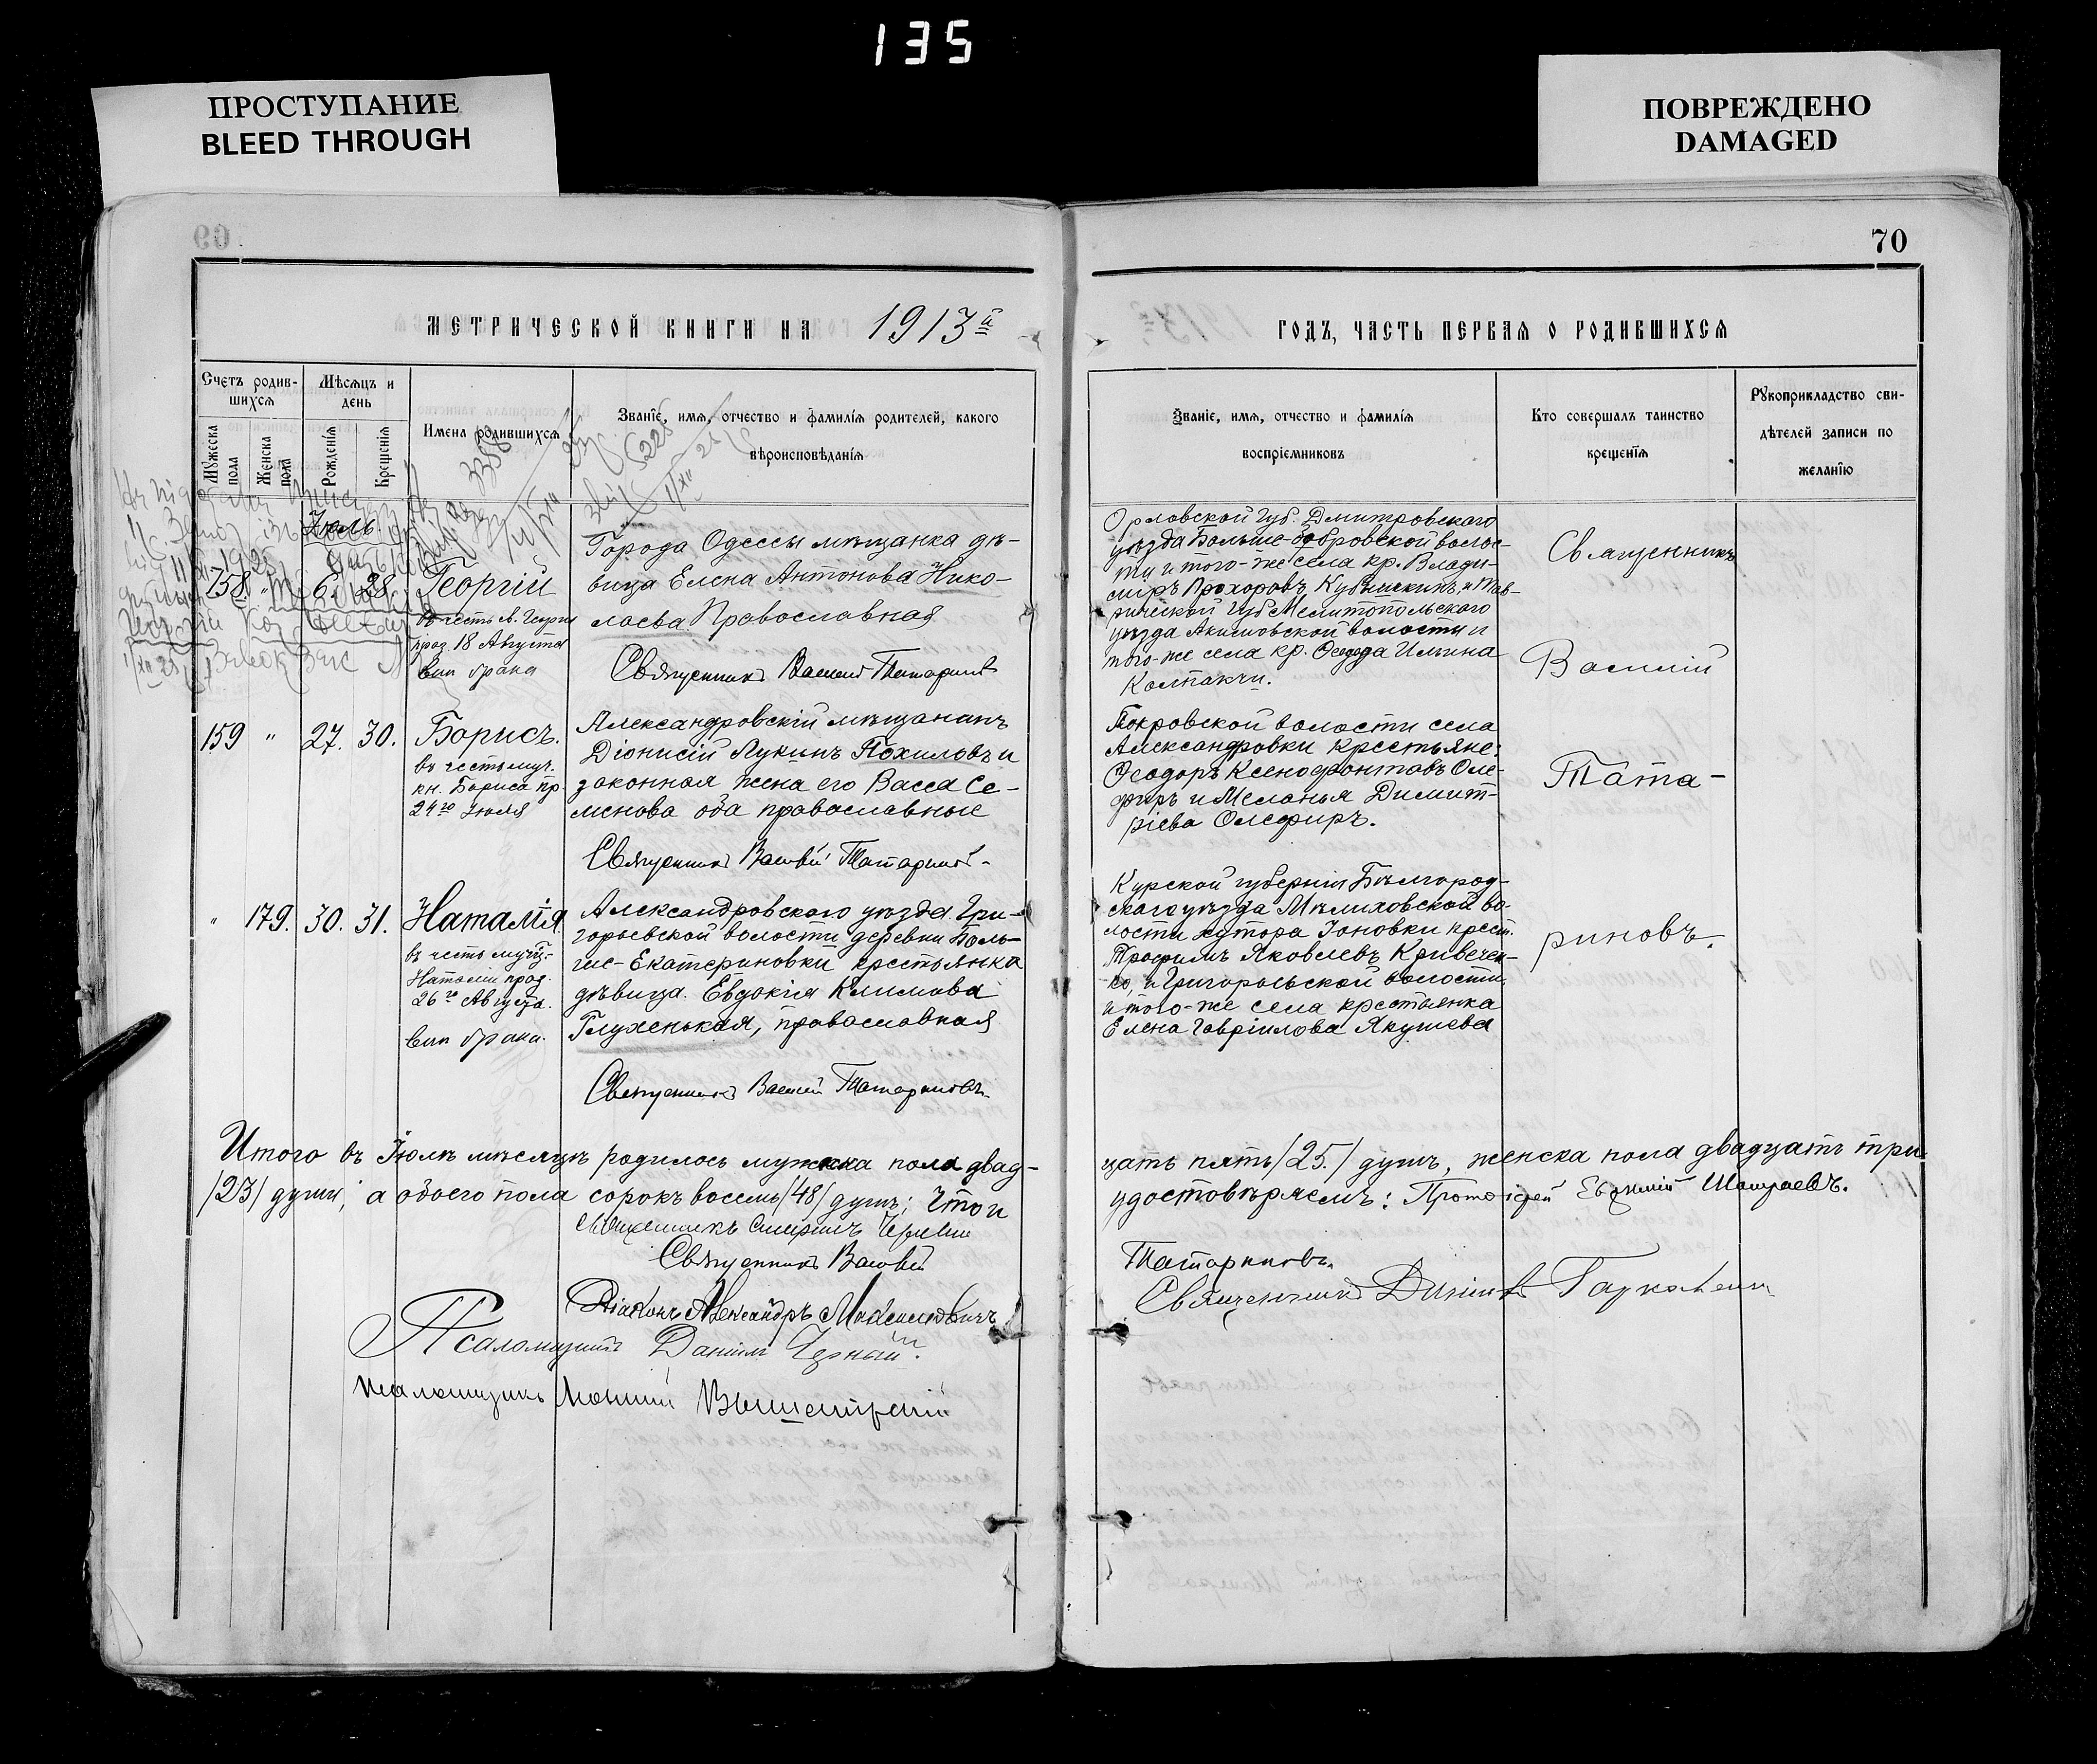 135
ПРОСТУПАНИЕ
BLEED THROUGH
ПОВРЕЖДЕНО
DAMAGED
69
70
МЕТРИЧЕСКОЙ КНИГИ НА 1913й
ГОДЪ, ЧАСТЬ ПЕРВАЯ О РОДИВШИХСЯ
Счетъ родив-
шихся
Мѣсяцъ и
день
Мужеска
пола
Женска
пола
Рожденія
Крещенія
Имена родившихся
Званіе, имя, отчество и фамилія родителей, какого
вѣроисповѣданія
Званіе, имя, отчество и фамилія
воспріемниковъ
Кто совершалъ таинство
крещенія
Рукоприкладство сви-
дѣтелей записи по
желанію
Іюль.
158. " 6. 28. Георгій
въ честь св. Георгія
праз. 18 Августа
внѣ брака
Города Одессы мѣщанка дѣ-
вица Елена Антонова Нико-
лаева Православная
Священникъ Василій Татариновъ
Орловской Губ. Дмитровского
уѣзда Больше-Бобровской волос-
ти и того-же села кр. Влади-
миръ Прохоровъ Кубышкинъ, и Тав-
рической Губ Мелитопольского
уѣзда Акимовской волости и
того-же села кр. Ѳеодора Ильина
Колпакчи.
Священникъ
Василій
Тата-
риновъ.
159 " 27. 30. Борисъ.
въ честь муч.
кн. Бориса пр.
24го Іюля
Александровскій мѣщанинъ
Діонисій Лукинъ Похиловъ и
законная жена его Васса Се-
менова оба православные
Священникъ Василій Татариновъ
Покровской волости села
Александровки крестьяне:
Ѳеодоръ Ксенофонтовъ Оле-
фиръ и Меланья Димит-
ріева Олефиръ.
" 179. 30. 31. Наталія
въ честь муч.
Наталіи праз.
26го Августа.
внѣ брака.
Александровского уѣзда Гри-
горьевской волости деревни Боль-
ше-Екатериновки крестьянка
дѣвица Евдокія Климова
Глухенькая, православная
Священникъ Василій Татариновъ
Курской губерніи Бѣлгород-
ского уѣзда Мѣлиховской во-
лости хутора Іоновки крест.
Трофимъ Яковлевъ Кривечен-
ко, и Григорьевской волости
и того-же села крестьянка
Елена Гавріилова Якушева
Итого въ Іюлѣ мѣсяцѣ родилось мужска пола двад-
цать пять /25./ душъ, женска пола двадцать три
/23/ души, а обоего пола сорокъ восемь /48/ душъ; Что и
удостовѣряемъ: Протоіерей Евфимій
Священникъ
Священникъ Василій Татариновъ.
Діаконъ Александръ Максимовичъ
Священникъ
Псаломщикъ Даніилъ Черный.
Псаломщикъ